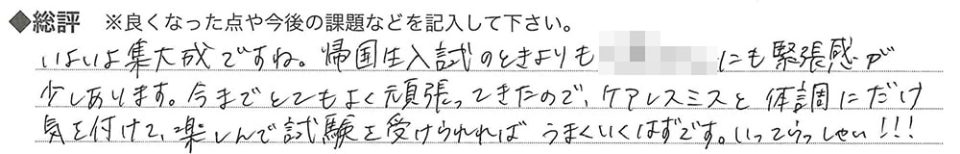 ◆総評 ※良くなった点や今後の課題などを記入して下さい。
いよいよ集大成ですね。帰国生入試のときよりも にも緊張感が
少しあります。今までとてもよく頑張ってきたので、ケアレスミスと体調にだけ
気を付けて、楽しんで試験を受けられればうまくいくはずです。いってらっしゃい!!!